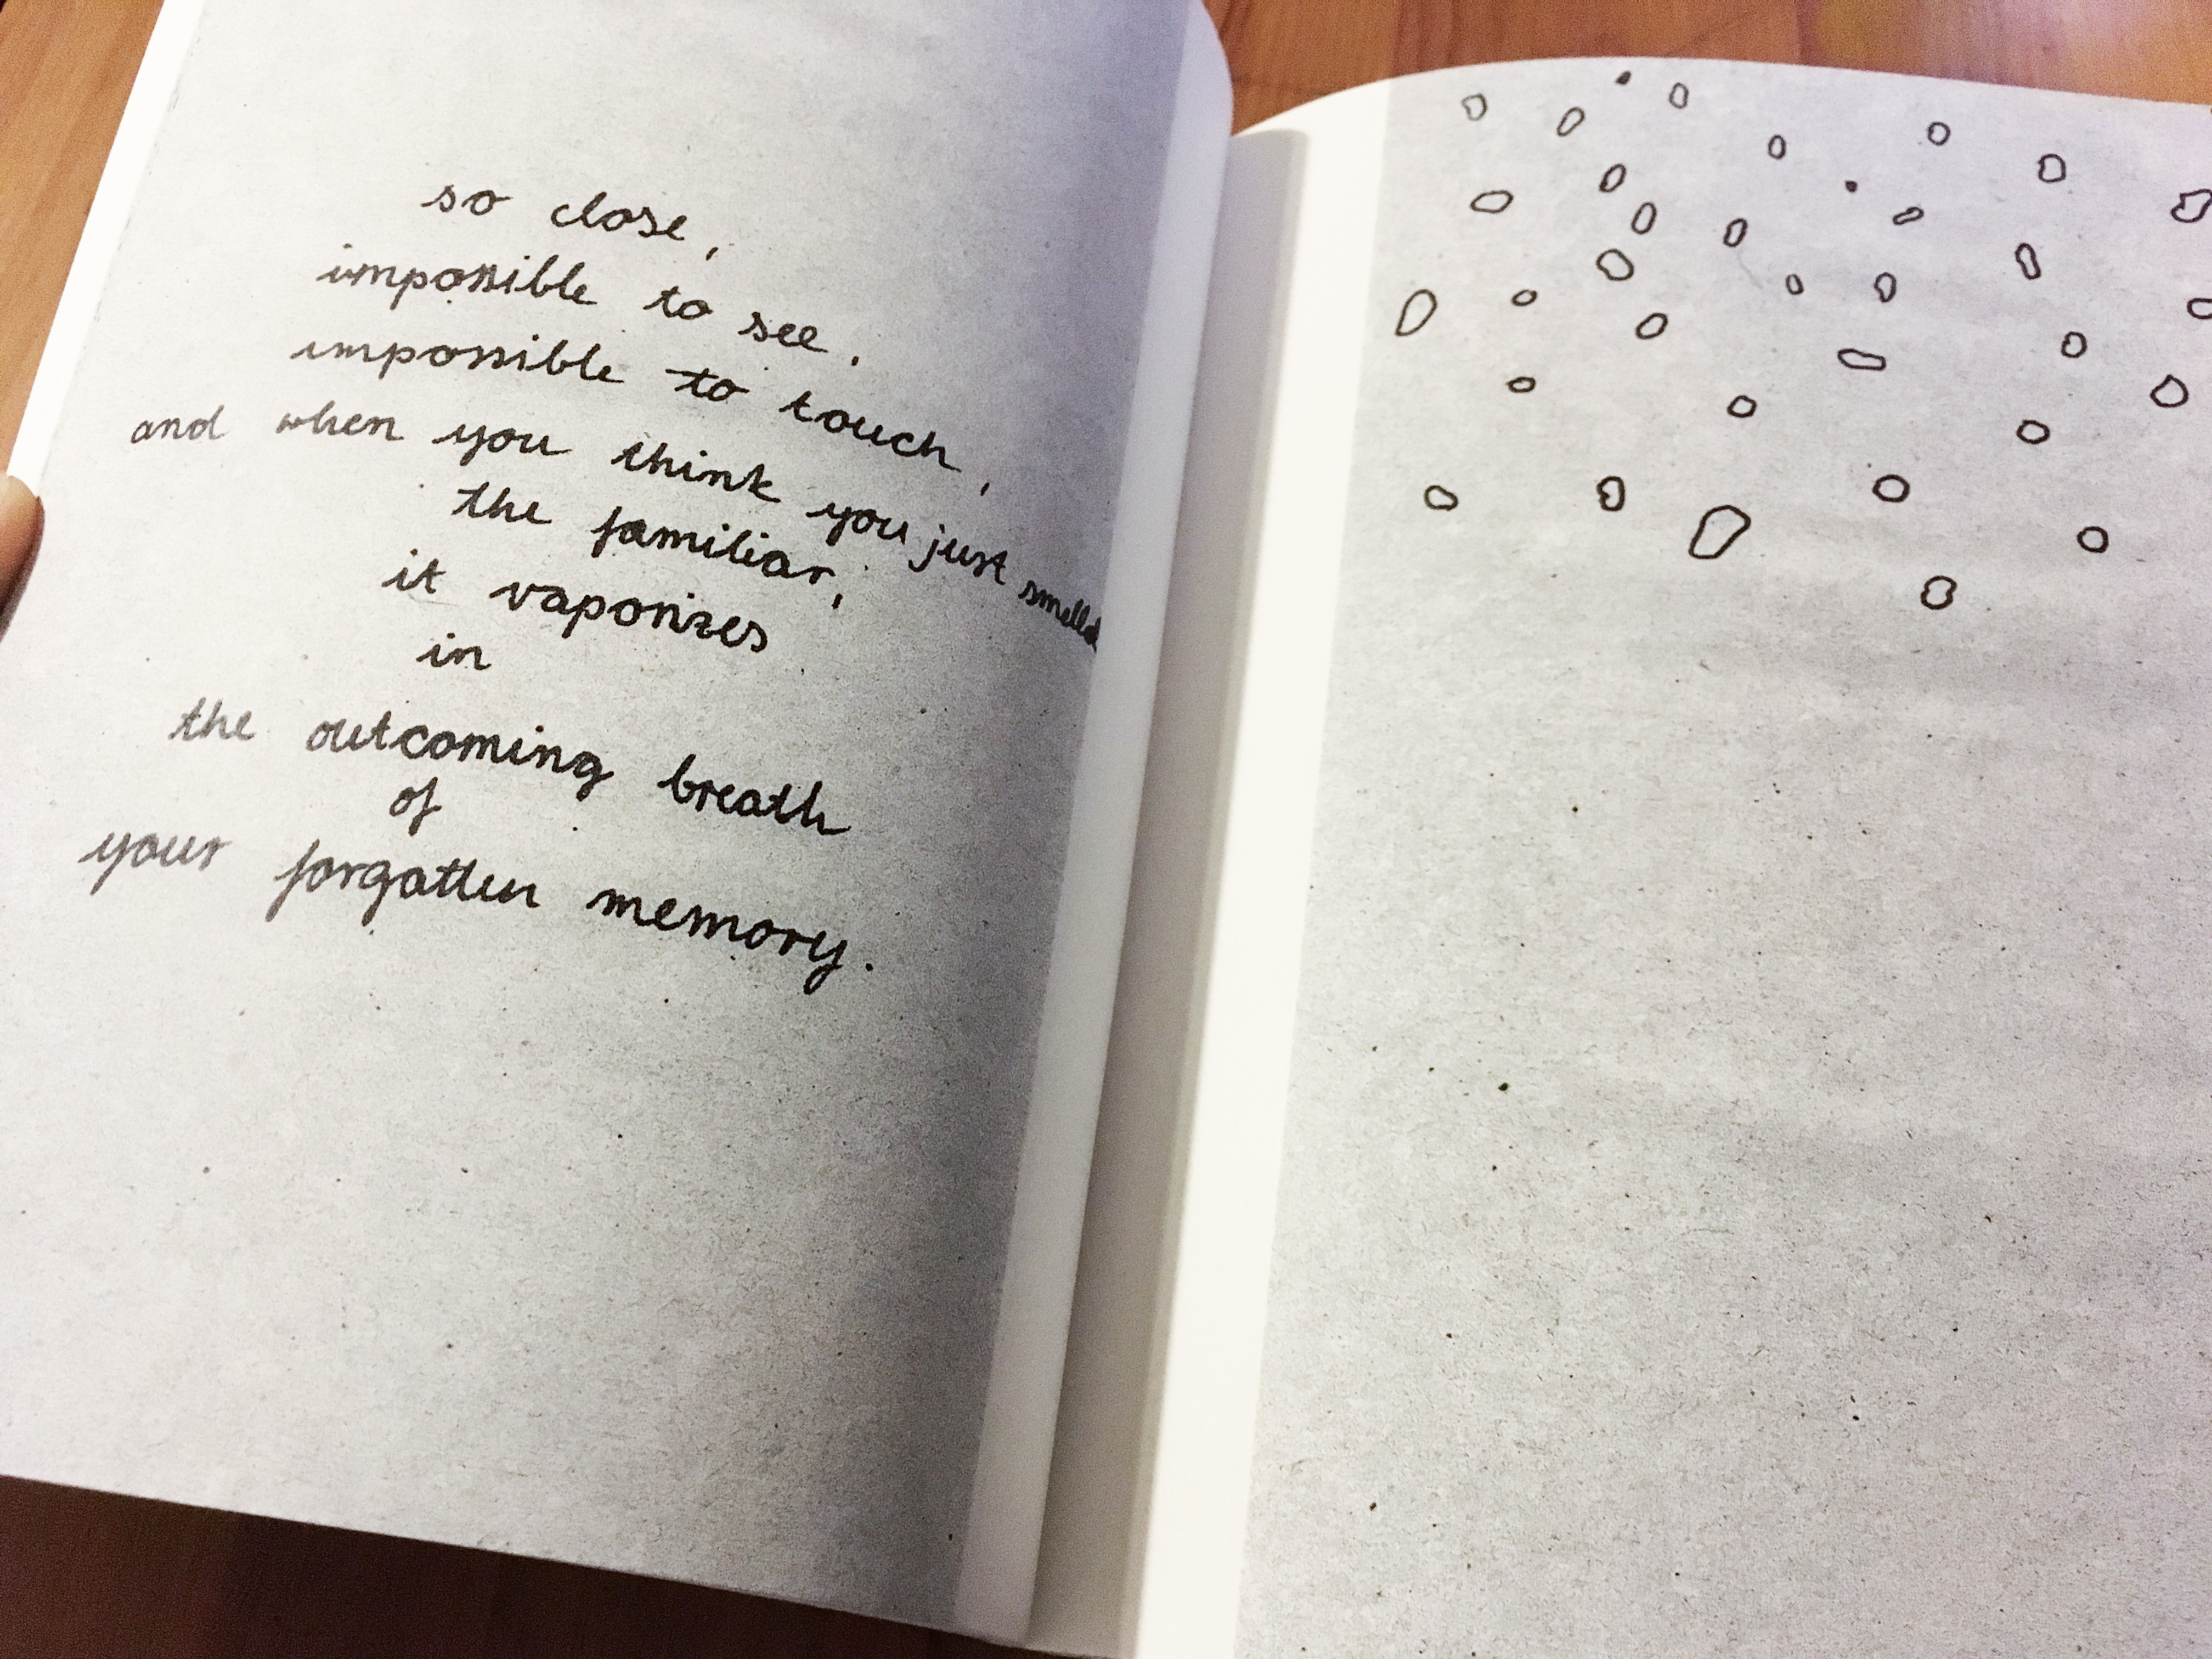 so close,
impossible to see,
impossible to touch,
and when you think you just smelled
the familiar,
it vaporizes
in
the outcoming breath
of
your forgotten memory.